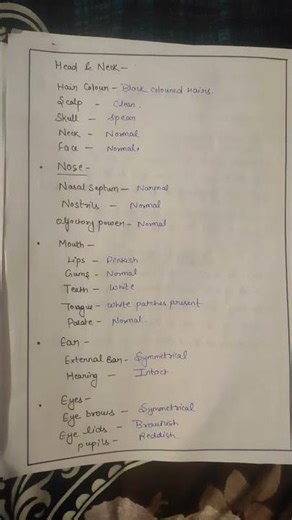 Head & Neck -
Hair Colour - Black coloured Hairs.
Scalp - Clean.
Skull - Spean
Neck - Normal
Face - Normal.
• Nose -
Nasal Septum - Normal
Nostrils - Normal
Olfactory power - Normal
• Mouth -
Lips - Pinkish
Gums - Normal
Teeth - White
Tongue - White patches present
Palate - Normal.
• Ear -
External Ear - Symmetrical
Hearing - Intact
• Eyes -
Eye brows - Symmetrical
Eye lids - Brownish
pupils - Reddish